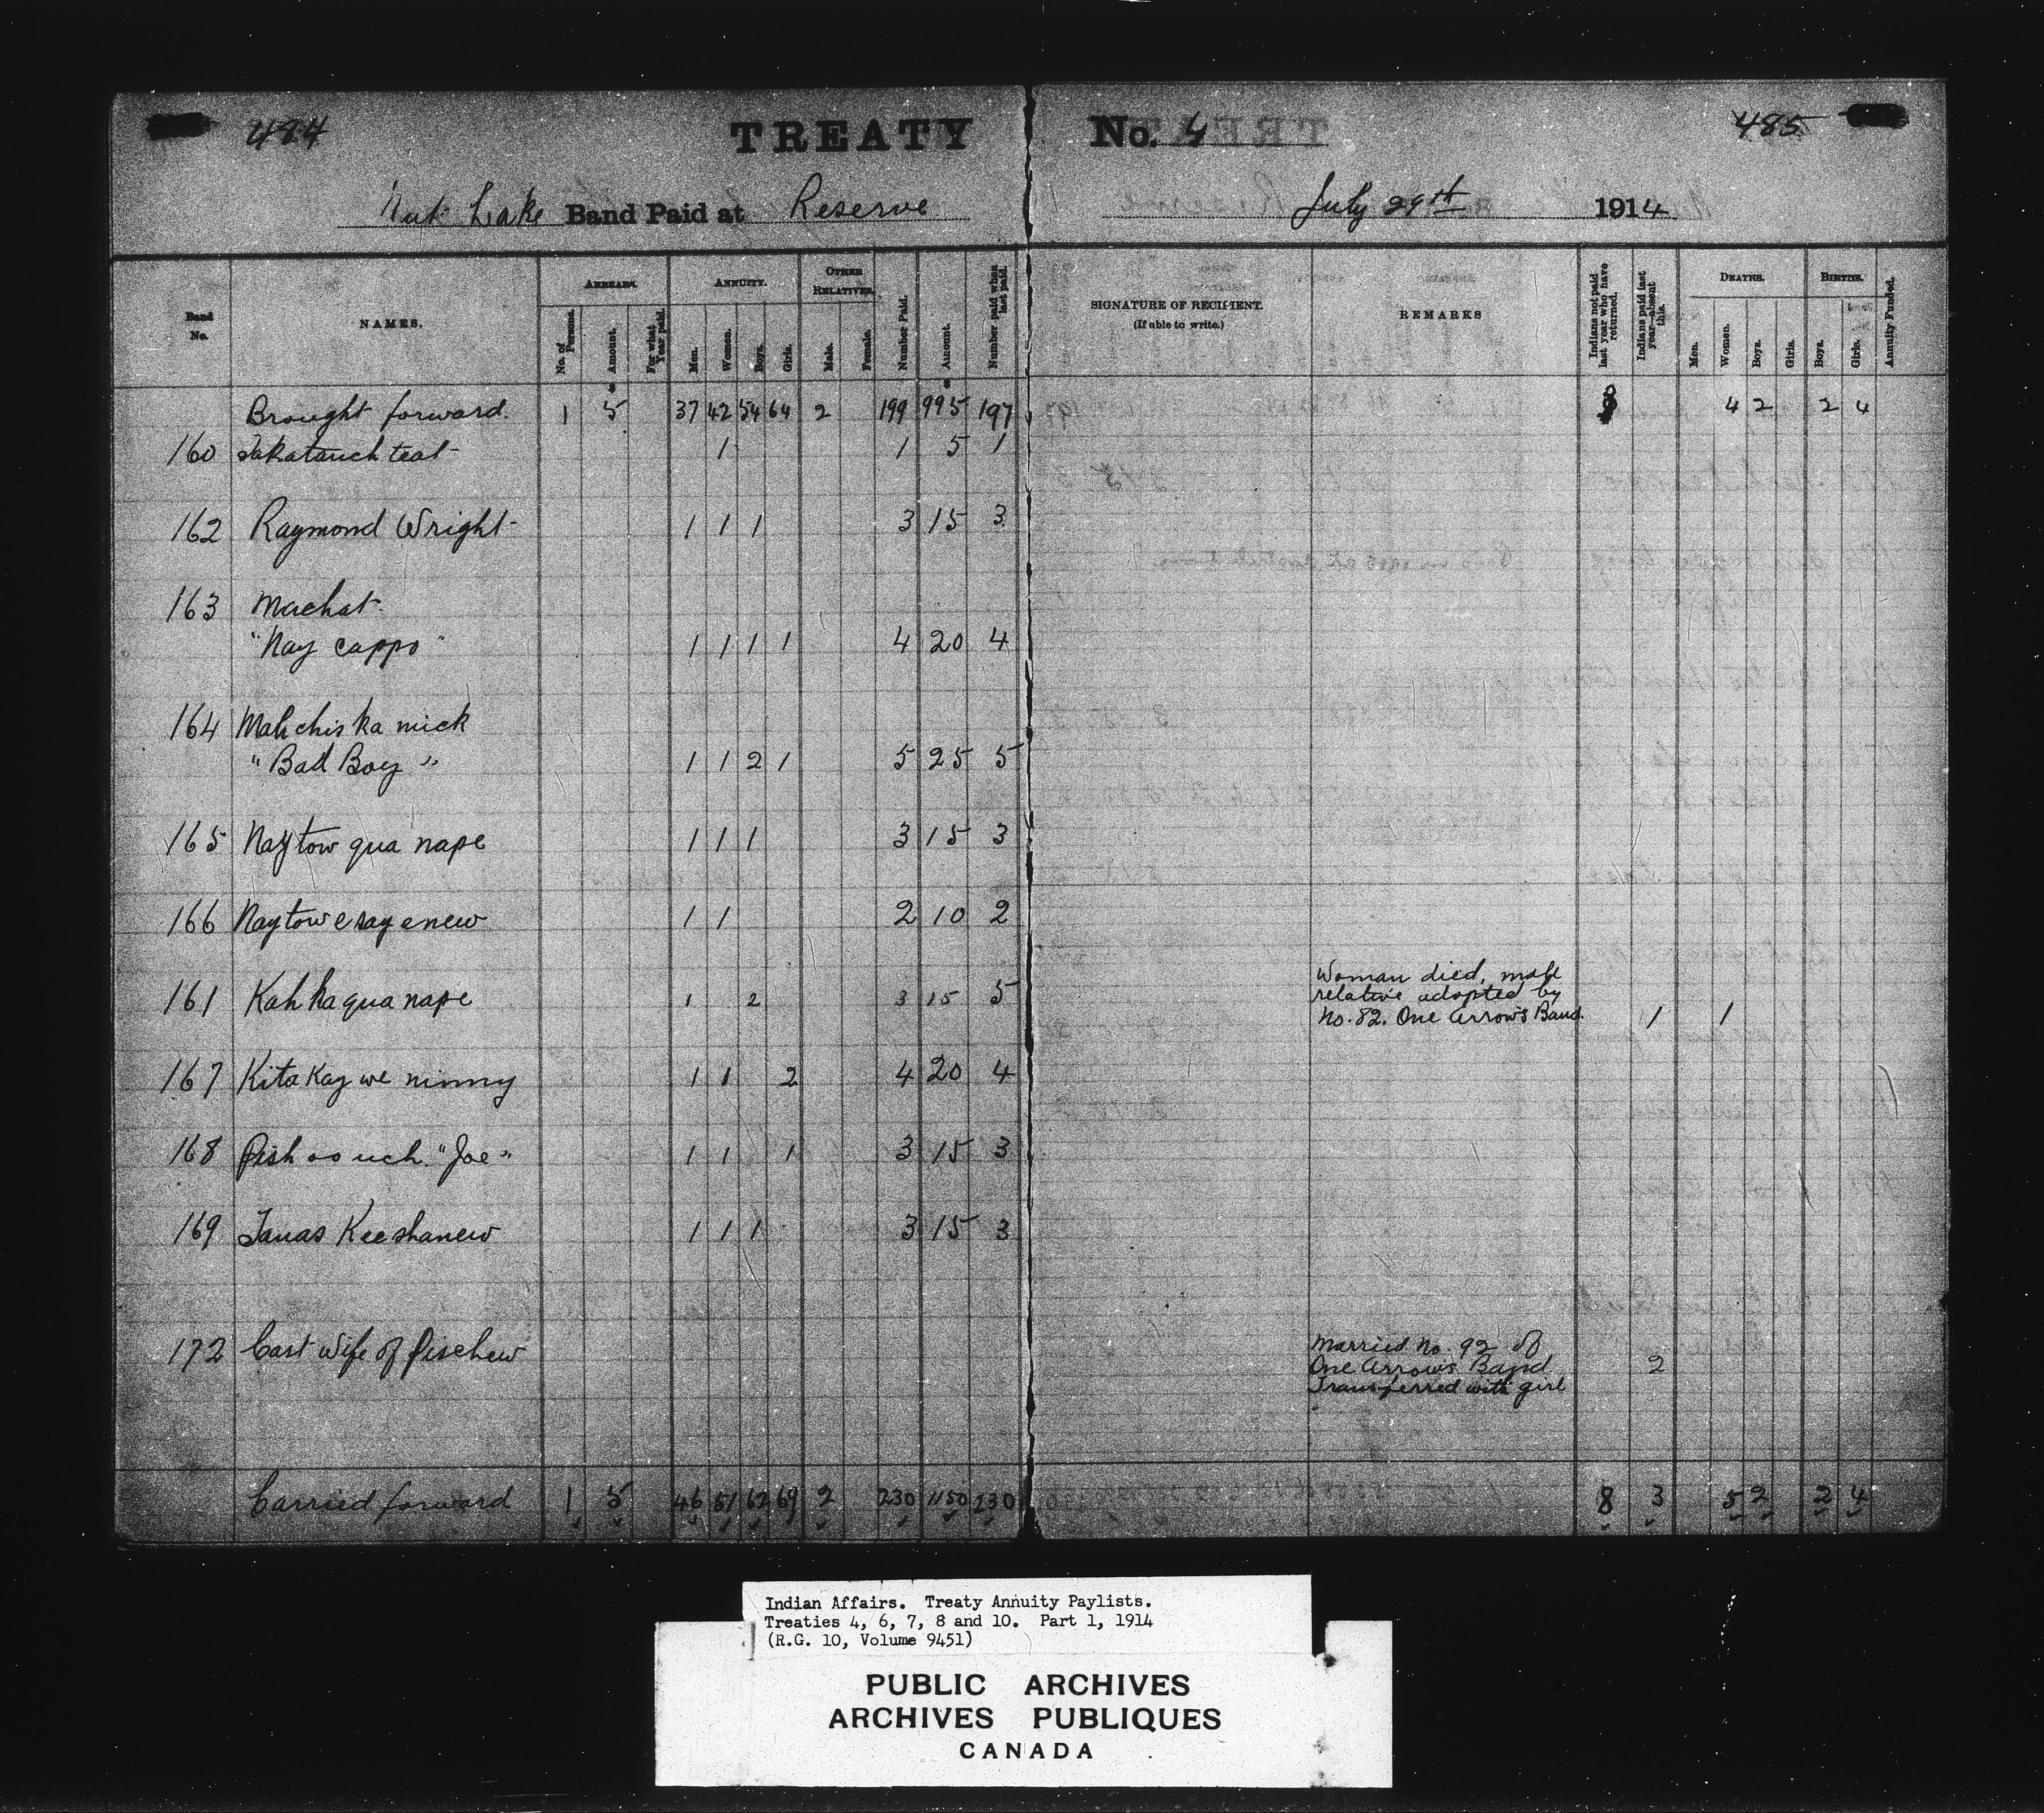 484 TREATY No. 4 485
Nut Lake Band Paid at Reserve July 29th 1914
Band No. NAMES. ARREARS. No. of Persons. Amount. For what Year paid. ANNUITY. Men. Women. Boys. Girls. OTHER RELATIVES. Male. Female. Number Paid. Amount. Number paid when last paid. SIGNATURE OF RECIPIENT. (If able to write.) REMARKS Indians not paid last year who have returned. Indians paid last year—absent this. DEATHS. Men. Women. Boys. Girls. BIRTHS. Boys. Girls. Annuity Funded.
Brought forward. 1 5 37 42 54 64 2 199 995 197 8 4 2 2 4
160 1 1 5 1
162 Raymond Wright 1 1 1 3 15 3
163 Machat
"Nay cappo" 1 1 1 1 4 20 4
164 Mah chis ka mick
"Bad Boy" 1 1 2 1 5 25 5
165 Naytow qua nape 1 1 1 3 15 3
166 Naytow e say e new 1 1 2 10 2
161 Kah ka qua nape 1 2 3 15 5 Woman died, male
relative adopted by
No. 82. One Arrow's Band. 1 1
167 Kita Kay we ninny 1 1 2 4 20 4
168 Pish oo uch. "Joe" 1 1 1 3 15 3
169 Tanas Kee shanew 1 1 1 3 15 3
172 Cast wife of Pischew Married No. 92 of
One Arrow's Band
Transferred with girl 2
Carried forward 1 5 46 51 62 69 2 230 1150 230 8 3 5 2 2 4
Indian Affairs. Treaty Annuity Paylists.
Treaties 4, 6, 7, 8 and 10. Part 1, 1914
(R.G. 10, Volume 9451)
PUBLIC ARCHIVES
ARCHIVES PUBLIQUES
CANADA